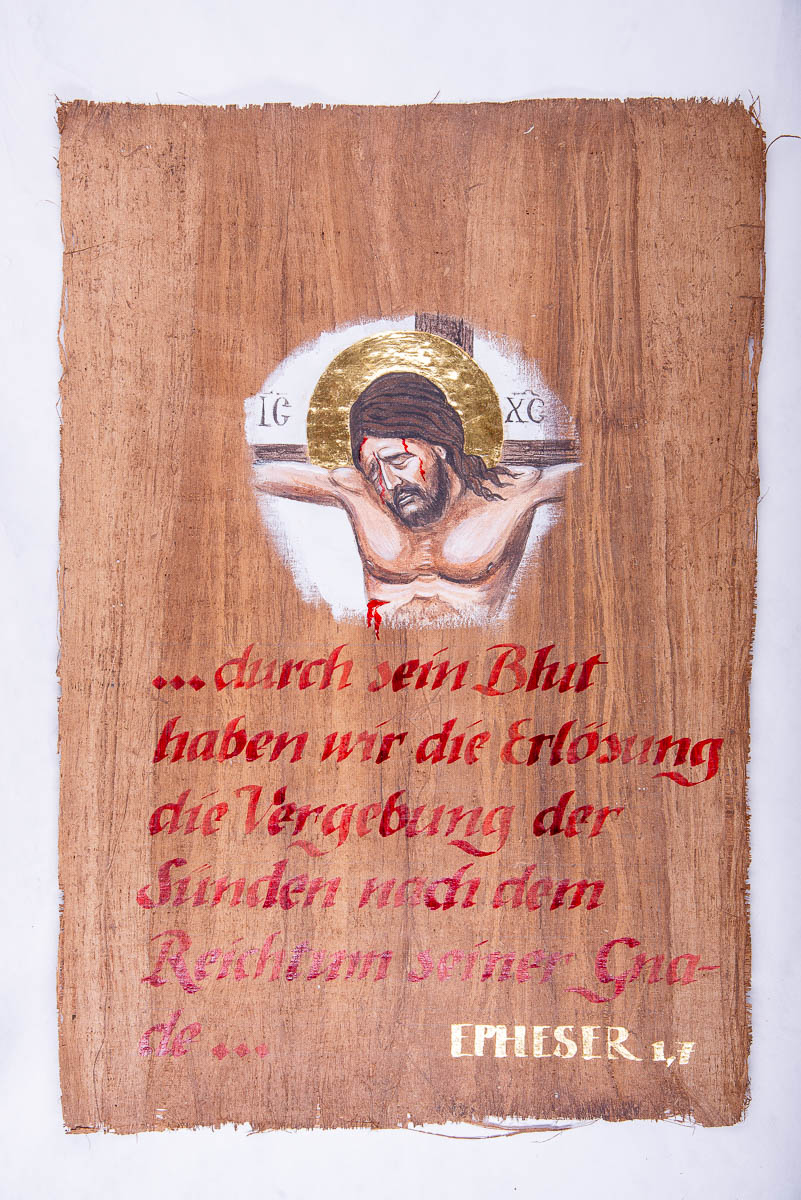 ІС ХС
...durch sein Blut
haben wir die Erlösung
die Vergebung der
Sünden nach dem
Reichtum seiner Gna-
de...
EPHESER 1,7